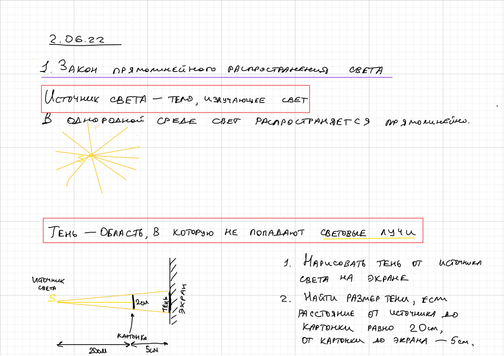 2.06.22
1. Закон прямолинейного распространения света
Источник света — тело, излучающее свет
В однородной среде свет распространяется прямолинейно.
S
Тень — область, в которую не попадают световые лучи
источник
света
S
2см
тень
экран
картонка
20см
5см
1. Нарисовать тень от источника
света на экране
2. Найти размер тени, если
расстояние от источника до
картонки равно 20см,
от картонки до экрана — 5см.